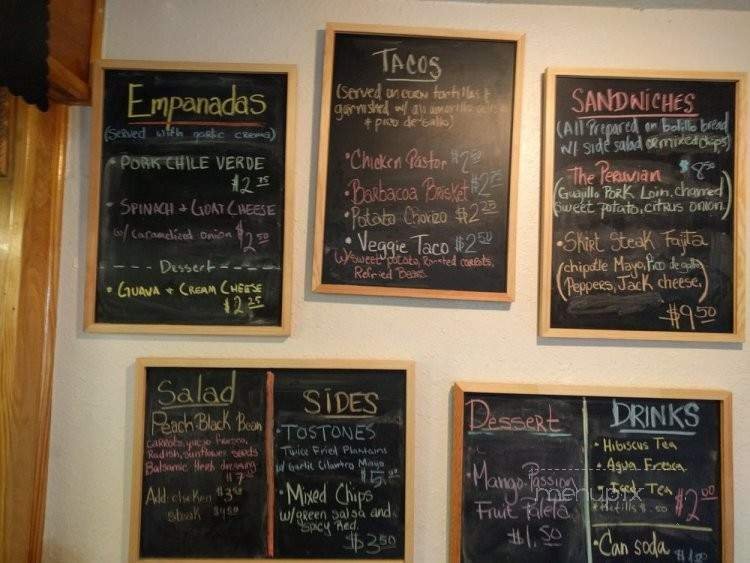 Empanadas
(Served with garlic crema)
• PORK CHILE VERDE
$2.75
• SPINACH & GOAT CHEESE
w/ caramelized onion $2.50
Dessert
• GUAVA & CREAM CHEESE
$2.25
TACOS
(Served on corn tortillas &
garnished w/ aji amarillo
& pico de gallo)
• Chicken Pastor $2.50
• Barbacoa Brisket $2.75
• Potato Chorizo $2.25
• Veggie Taco $2.50
w/ sweet potato, Roasted carrots,
Refried Beans.
SANDWICHES
(All Prepared on bolillo bread
w/ side salad or mixed chips)
• The Peruvian $8.50
(Guajillo Pork Loin, charred
sweet potato, citrus onion.)
• Skirt Steak Fajita
(chipotle Mayo, Pico de gallo
Peppers, Jack cheese.)
$9.50
Salad
Peach Black Bean
carrots, queso fresco,
Radish, sunflower seeds
Balsamic Herb dressing
$7
Add: chicken $3.50
steak $4.50
SIDES
• TOSTONES
Twice Fried Plantains
w/ Garlic Cilantro Mayo
• Mixed Chips
w/ green salsa and
spicy Red.
$3.50
Dessert
Mango-Passion
Fruit Paleta
$1.50
DRINKS
• Hibiscus Tea
• Agua Fresca
• Iced-Tea $2.00
* Refills $.50
• Can soda
menupix